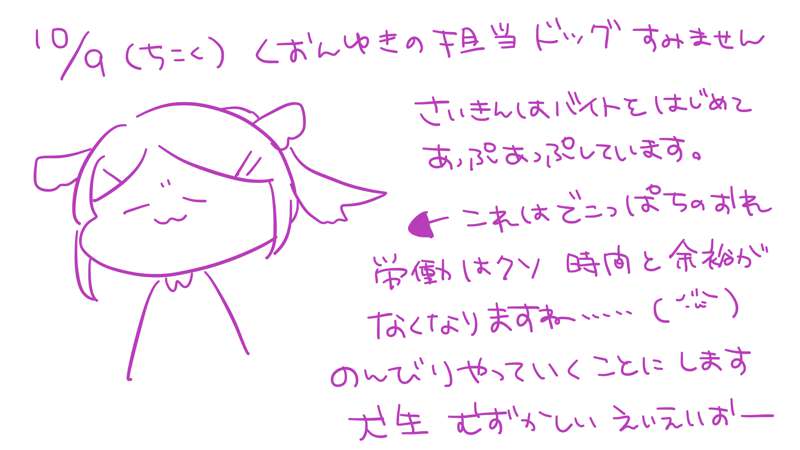 10/9（ちこく）くおんゆきの担当ドッグすみません
さいきんはバイトをはじめて
あっぷあっぷしています。
←これはでこっぱちのおれ
労働はクソ 時間と余裕が
なくなりますね……（ ）
のんびりやっていくことにします
犬生 むずかしい えいえいおー